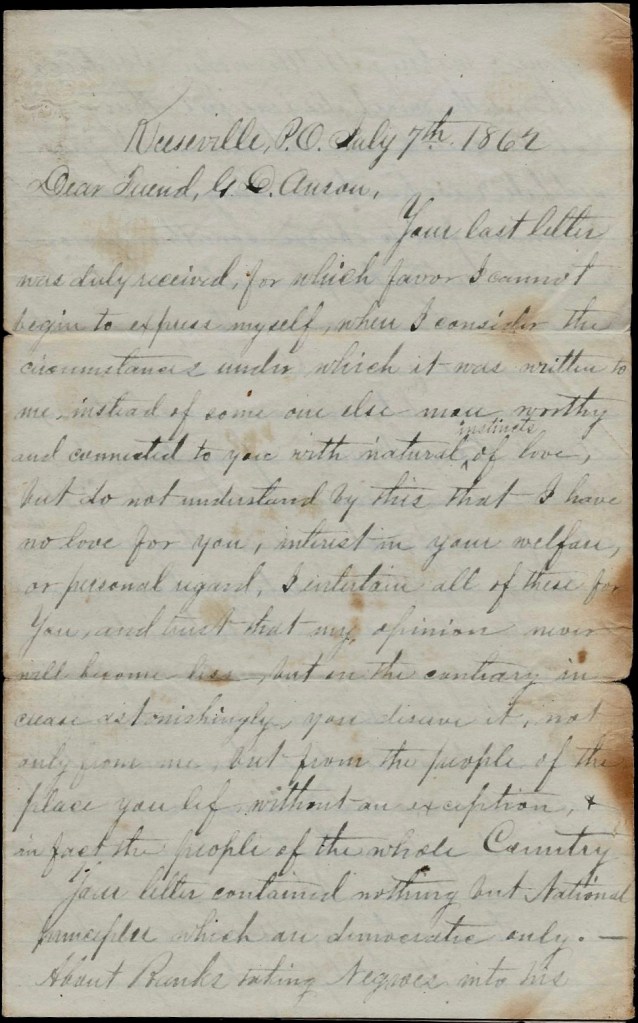 Keeseville, P.O. July 7th. 1864
Dear Friend, G. D. Anson,
Your last letter
was duly received, for which favor I cannot
begin to express myself, when I consider the
circumstances under which it was written to
me, instead of some one else more worthy
and connected to you with natural instincts of love,
but do not understand by this that I have
no love for you, interest in your welfare,
or personal regard, I entertain all of these for
You, and trust that my opinion never
will become less, but on the contrary in
crease astonishingly, you deserve it, not
only from me, but from the people of the
place you lef without an exception, &
in fact the people of the whole Country
Your letter contained nothing but National
principles which are democratic only. —
About Banks taking Negroes into his